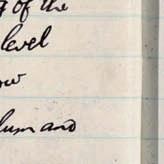 of the
level
ow
lum and